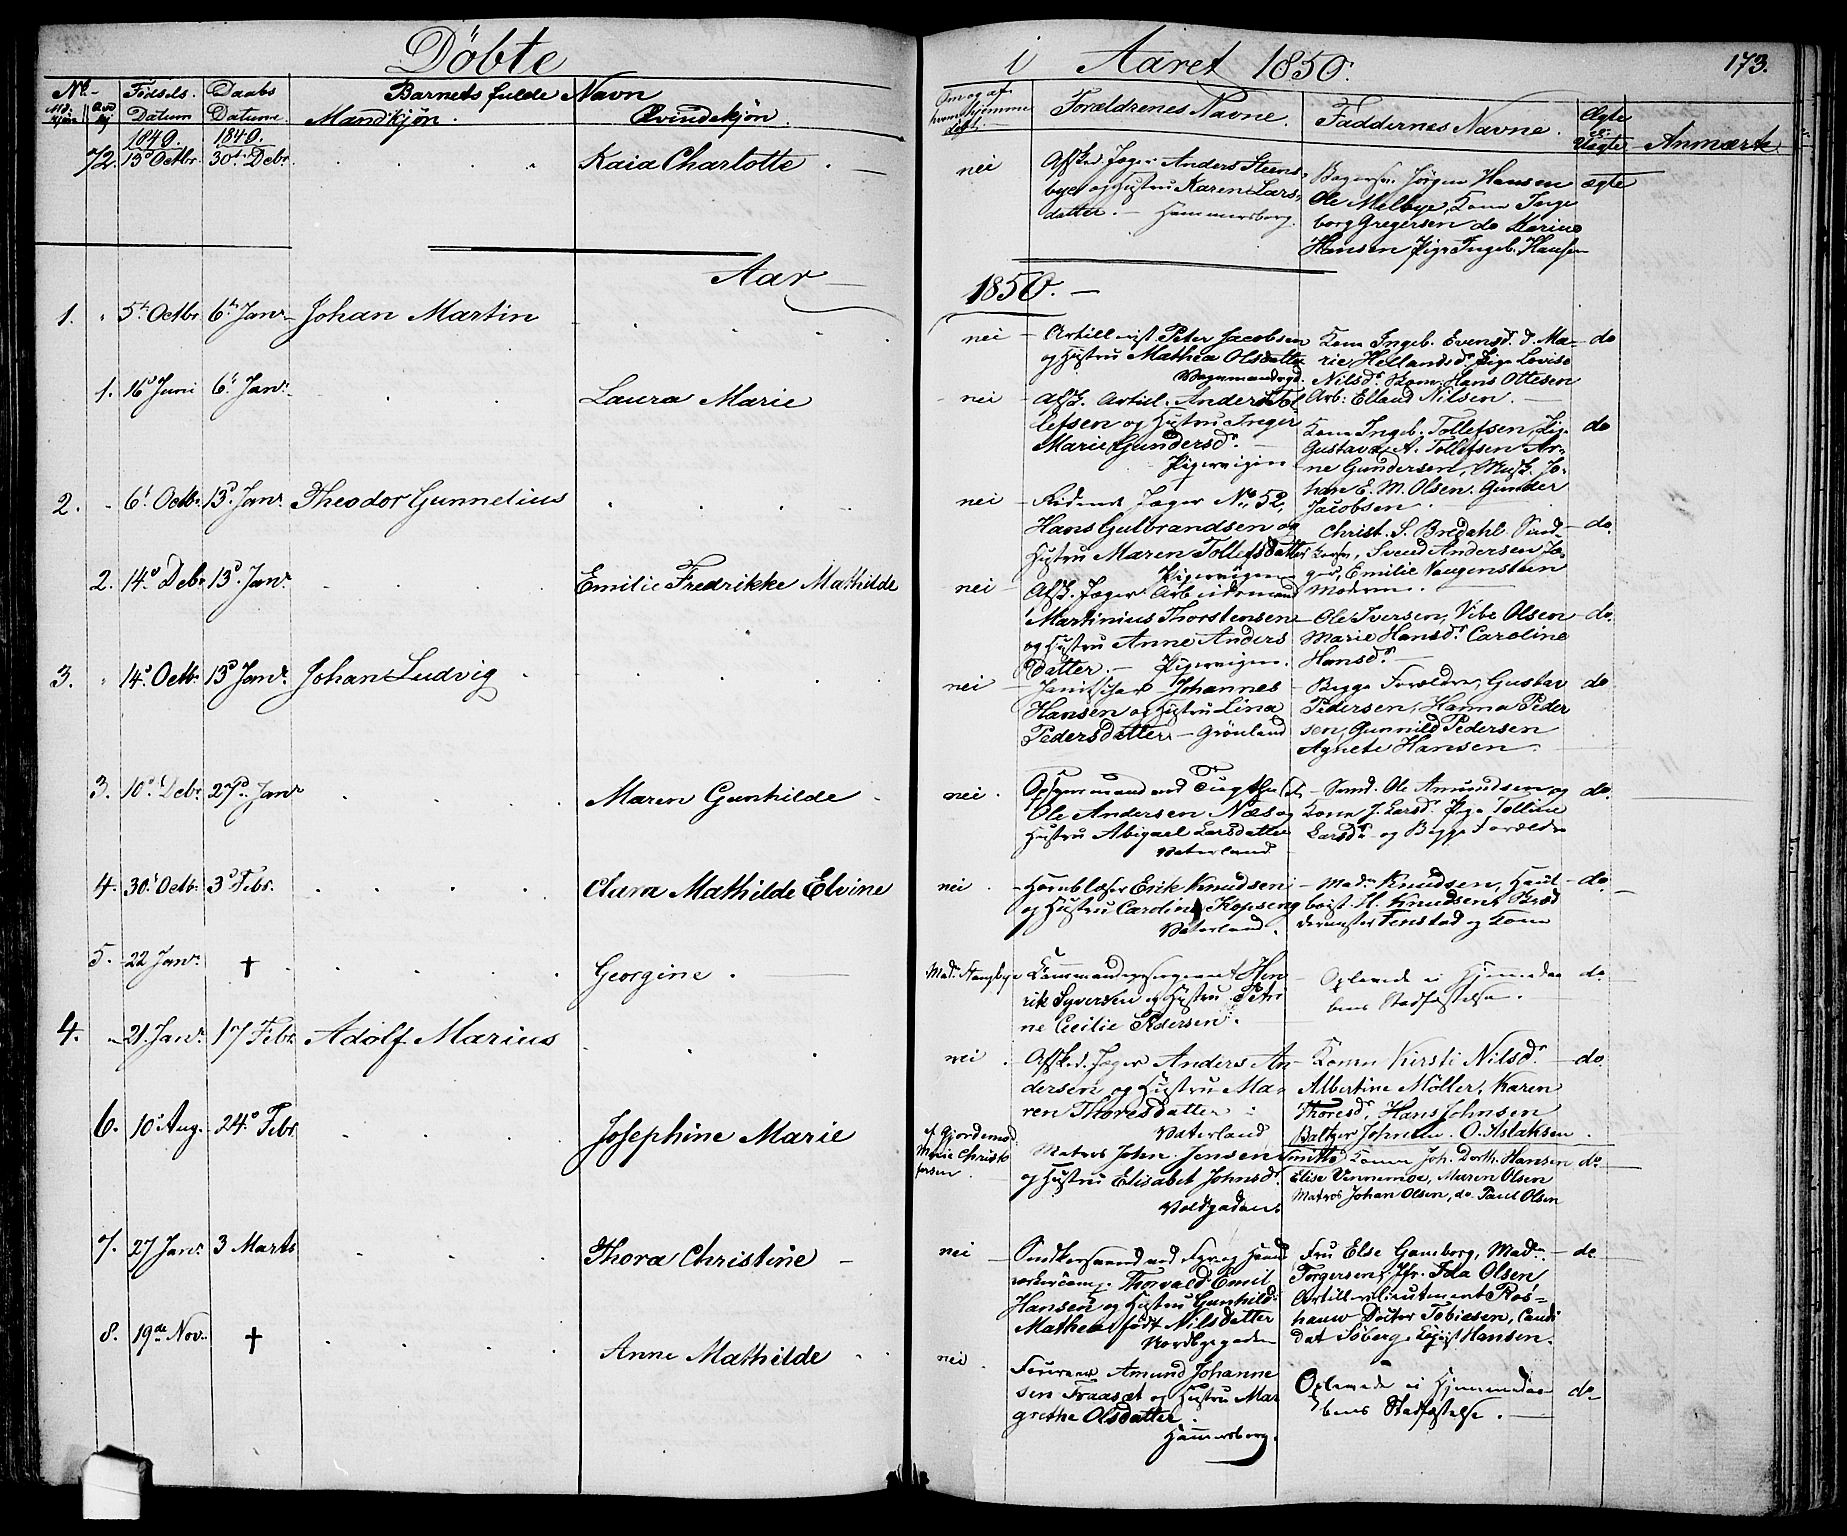 Döbte i Aaret 1850. 173.
No. Födsels Datum Daabs Datum Barnets fulde Navn
Mandkjön. Qvindekjøn.
Om og af hvem hjemme döbt.
Forældrenes Navne. Faddernes Navne. Ægte el. Uægte Anmærk.
1849. 1849.
72. 13de Octbr. 30te Debr. Kaia Charlotte
nei
Afsked. Jæger Anders Steens-
bye og Hustru Karen Lars-
datter. - Hammersborg.
Jörgen Hansen
Ole Melbye, Kone Inge-
borg Gregersen do Karine
Hansen Pige Ingeb. Hansen
ægte
Aar 1850.
1. 5te Octbr. 6te Janr. Johan Martin
nei
Artillerist Peter Jacobsen
og Hustru Mathea Olsdatter
Kone Ingeb. Evensd. d. Ma-
rie Hellandsd. Pige Lovise
Nilsd. Hans Ottesen
Arb. Elland Nilsen.
do
1. 16de Juni 6te Janr. Laura Marie
nei
Afsk. Artill. Anders Tol-
lefsen og Hustru Inger
Marie Gundersd.
Pipervigen
Kone Ingeb. Tollefsen, Pige
Gustava A. Tollefsen Ar-
ne Gundersen, Musk. Jo-
han E. M. Olsen. Gunder
Jacobsen.
do
2. 6te Octbr. 13de Janr. Theodor Gunnelius
nei
Ridende Jæger No. 52,
Hans Gulbrandsen og
Hustru Maren Tollefsdatter
Pipervigen
Christ. S. Bredahl
Svend Andersen Jæ-
ger, Emilie Vaugensteen
Moderen.
do.
2. 14de Debr. 13de Janr. Emilie Fredrikke Mathilde
nei
Afsk. Jæger Arbeidsmand
Martinius Thorstensen
og Hustru Anne Anders
datter. - Pipervigen.
Ole Iversen, Vibe Olsen
Marie Hansd. Caroline
Hansd.
do.
3. 14de Octbr. 13de Janr. Johan Ludvig
nei
Janitschar Johannes
Hansen og Hustru Lina
Pedersdatter - Grönland
Begge Forældre, Gustav
Pedersen, Hanna Peder
sen, Gunnild Pedersen
Agnete Hansen
do
3. 10de Debr. 27de Janr. Maren Gunhilde
nei.
Opsynsmand ved Tugthuset
Ole Andersen Næs og
Hustru Abigael Larsdatter
Vaterland
Smed. Ole Amundsen og
Kone J. Larsd. Pige Tolline
Larsd. og Begge Forældre
do.
4. 30te Octb. 3de Febr. Clara Mathilde Elvine
nei.
Hornblæser Erik Knudsen
og Hustru Caroline Kopseng
Vaterland.
Mad. Knudsen, Haut-
boist H. Knudsen,
Fenstad og Kone
do.
5. 22 Janr. † Georgine.
Mad. Stangbye
Commandeersergeant Hen-
rik Syversen og Hustru Petri-
ne Cecilie Pedersen.
Oplevede ei Hjemmedaa-
bens Stadfæstelse.
do.
4. 21. Janr. 17 Febr. Adolf Marius
nei.
Afsked. Jæger Anders An-
dersen og Hustru Ma-
ren Thoresdatter
Vaterland,
Kone Kirsti Nilsd.
Albertine Möller, Karen
Thoresd, Hans Johnsen
Baltzer Johnsen. O. Aslaksen.
do.
6. 10de Aug. 24de Febr. Josephine Marie
af Gjordemod.
Marie Christo-
fersen.
Matros John Jensen Smitt
og Hustru Elisabet Johnsd.
Voldgaden
Kone Joh. Dorth. Hansen
Elise Vennemoe, Maren Olsen
Matros Johan Olsen, do. Paul Olsen
do.
7. 27 Janr. 3 Marts Thora Christine
nei
Thorvald Emil
Hansen og Hustru Gunhild
Mathea født Nilsdatter
Nordbygaden
Fru Else Gamborg, Mad.
Torgersen, Jfr. Ida Olsen
Artillerilieutenant Ros-
hauw Doctor Tobiesen, Candi
dat Söberg. Copist Hansen.
do
8. 19de Nov. † Anne Mathilde
nei.
Foureer Amund Johanne-
sen Fraasæt og Hustru Mar-
grethe Olsdatter.
Hammersborg.
Oplevede ei Hjemmedaa-
bens Stadfæstelse.
do